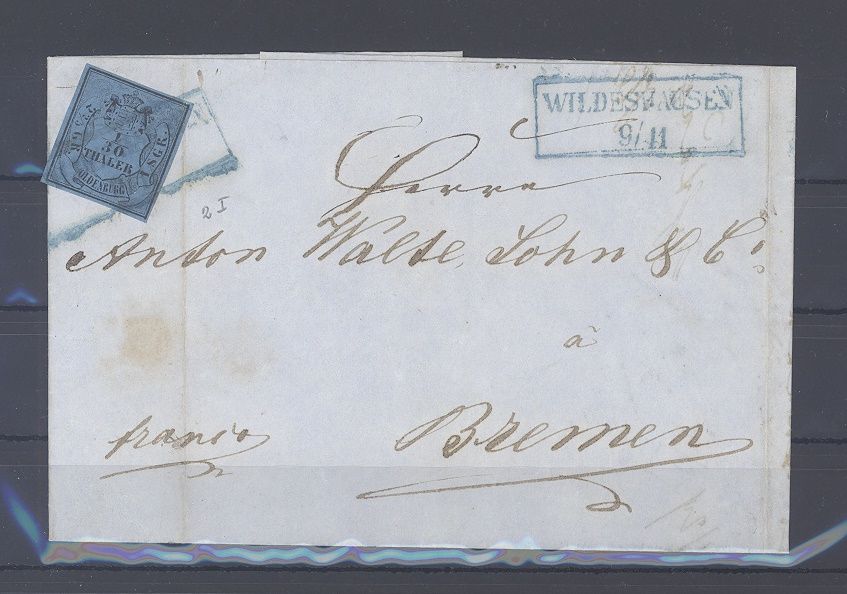 WILDESHAUSEN
9/11
1
30
THALER
OLDENBURG
1 SGR.
2 I
Herrn
Anton Walte, Sohn & C.
à
Bremen
franco